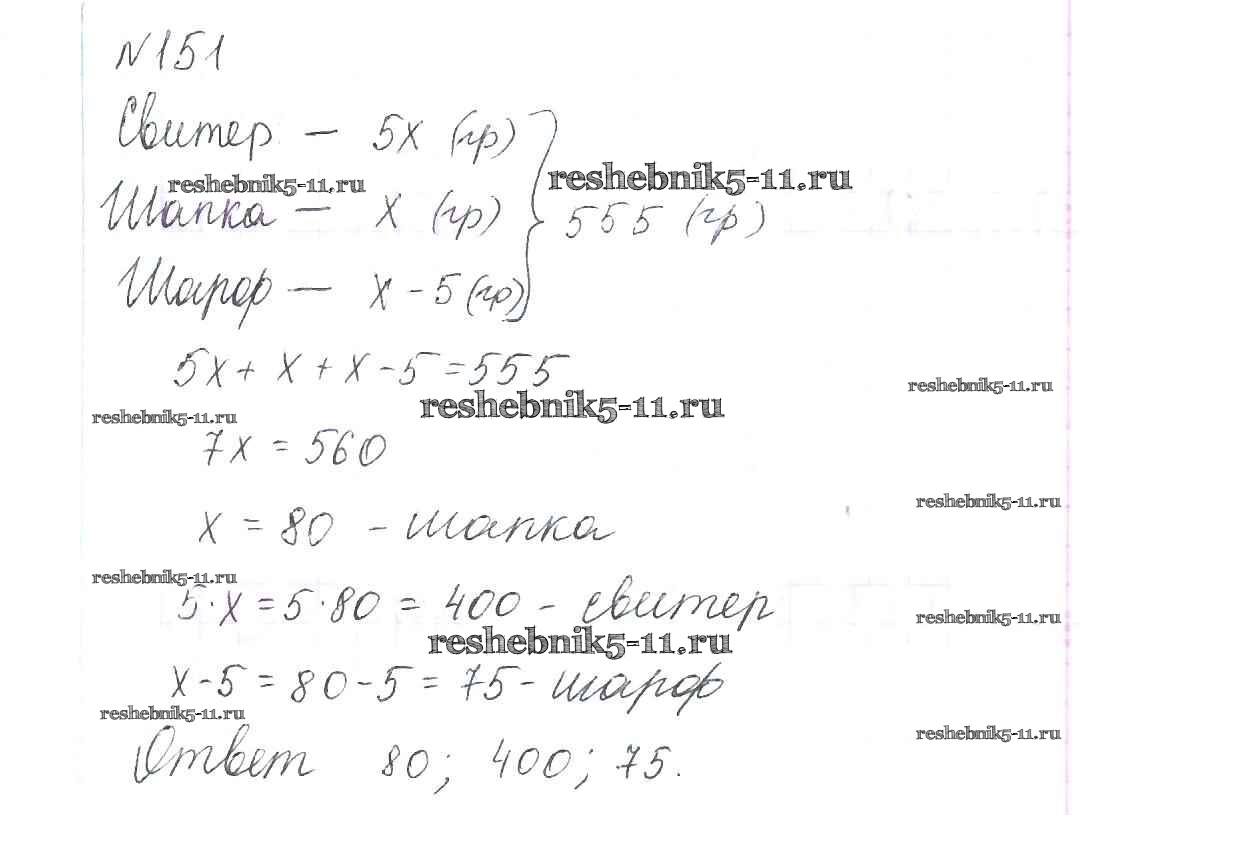 №151
Свитер – 5х (гр)
reshebnik5-11.ru
reshebnik5-11.ru
Шапка – х (гр)
555 (гр)
Шарф – х - 5 (гр)
5х + х + х - 5 = 555
reshebnik5-11.ru
reshebnik5-11.ru
reshebnik5-11.ru
7х = 560
reshebnik5-11.ru
х = 80 - шапка
reshebnik5-11.ru
5·х = 5·80 = 400 - свитер
reshebnik5-11.ru
reshebnik5-11.ru
х - 5 = 80 - 5 = 75 - шарф
reshebnik5-11.ru
reshebnik5-11.ru
Ответ 80; 400; 75.